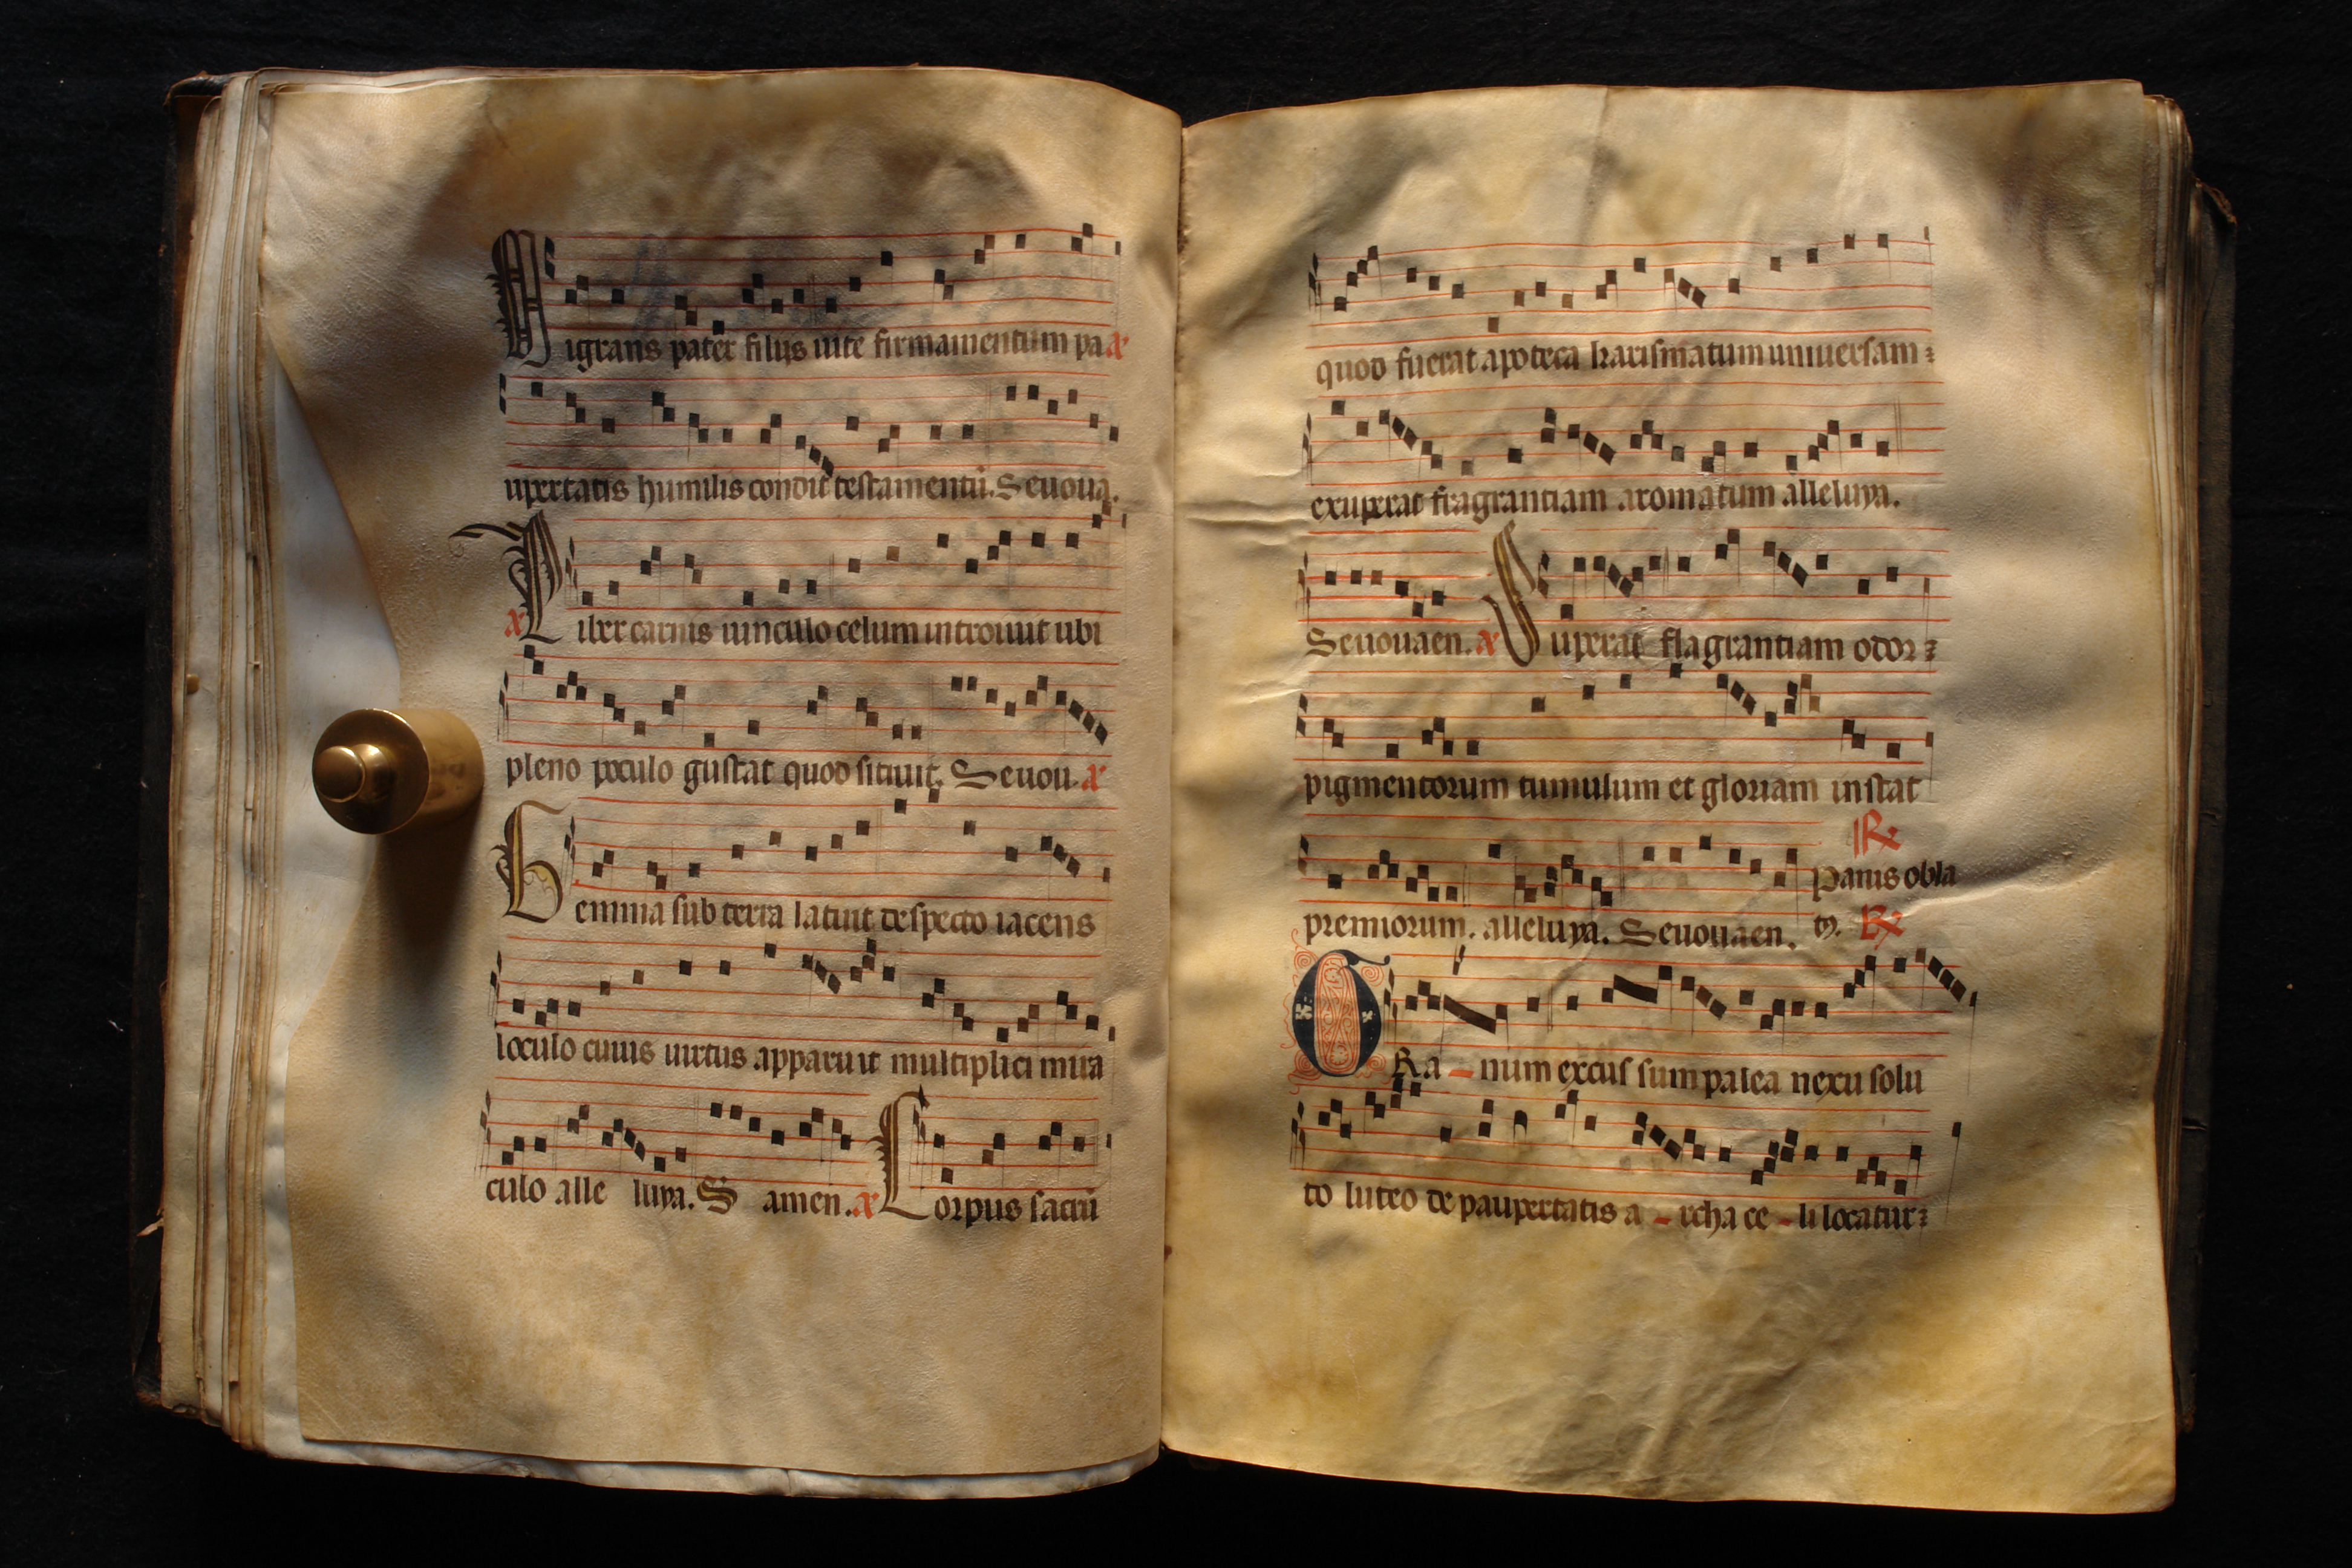 Migrans pater filiis uite firmamentum pa
upertatis humilis condit testamentū. Seuoua.
a Liber carnis uinculo celum introiuit ubi
pleno poculo gustat quod sitiuit. Seuou. a
Gemma sub terra latuit despecto iacens
loculo cuius uirtus apparuit multiplici mira
culo alle luya. S amen. a Corpus sacrū
quod fuerat apoteca karismatum uniuersam
exuperat fragrantiam aromatum alleluya.
Seuouaen. a Superat flagrantiam odor
pigmentorum tumulum et gloriam instat
premiorum. alleluya. Seuouaen.
℟
Panis obla
tꝰ. ℟
GRa - num excussum palea nexu solu
to luteo de paupertatis a - rcha ce - li locatur